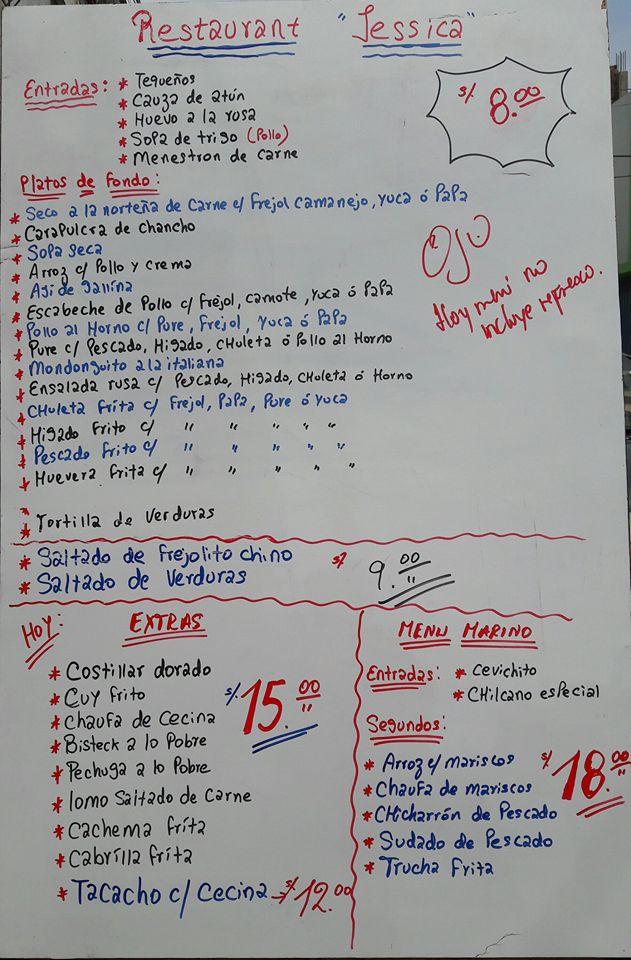 Restaurant "Jessica"
Entradas: * Tequeños
* Cauza de atún
* Huevo a la rosa
* Sopa de trigo (Pollo)
* Menestron de carne
S/. 8.00
Platos de Fondo:
* Seco a la norteña de Carne c/ Frejol Camanejo, yuca ó PaPa
* Carapulcra de chancho
* Sopa seca
* Arroz c/ Pollo y crema
* Aji de gallina
* Escabeche de Pollo c/ Frejol, camote, yuca ó PaPa
* Pollo al Horno c/ Pure, Frejol, yuca ó PaPa
* Pure c/ Pescado, Higado, CHuleta ó Pollo al Horno
* Mondonguito a la italiana
* Ensalada rusa c/ Pescado, Higado, CHuleta ó Horno
* CHuleta Frita c/ Frejol, PaPa, Pure ó yuca
* Higado Frito c/ " " " " "
* Pescado Frito c/ " " " " "
* Huevera Frita c/ " " " " "
* Tortilla de Verduras
Ojo
Hoy menú no
incluye refresco.
* Saltado de Frejolito chino
* Saltado de Verduras
S/. 9.00
Hoy: EXTRAS
* Costillar dorado
* Cuy frito
* Chaufa de Cecina
* Bisteck a lo Pobre
* Pechuga a lo Pobre
* lomo Saltado de Carne
* Cachema frita
* Cabrilla frita
S/. 15.00
* Tacacho c/ Cecina → S/. 12.00
MENU MARINO
Entradas: * Cevichito
* CHilcano especial
Segundos:
* Arroz c/ mariscos
* Chaufa de mariscos
* CHicharrón de Pescado
* Sudado de Pescado
* Trucha Frita
S/. 18.00